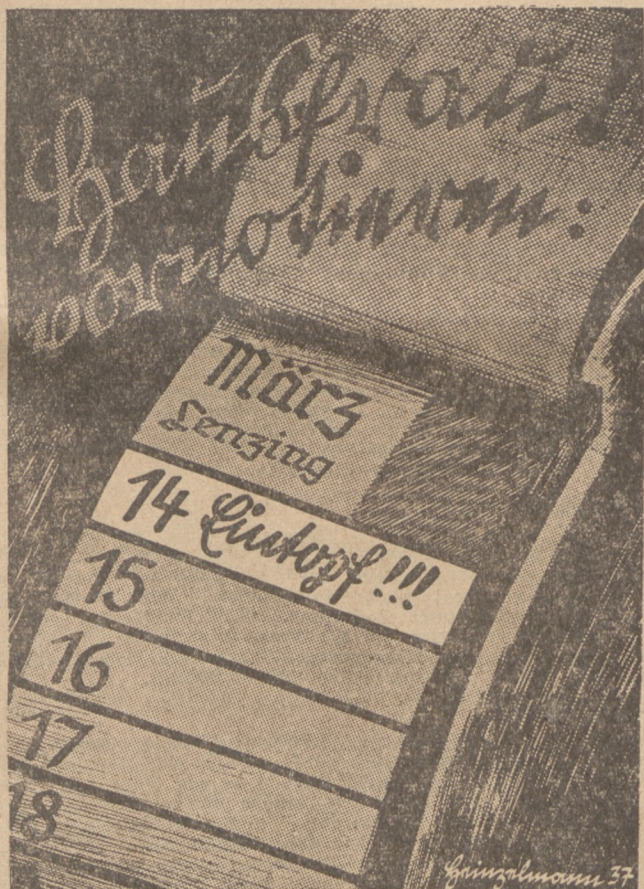 Hausfrau!
vornotieren:
März
Lenzing
14 Eintopf!!!
15
16
17
18
Heinzelmann 37